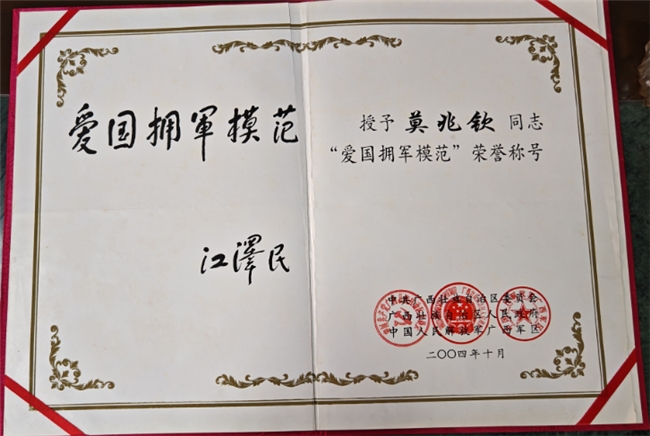 爱国拥軍模范
江澤民
授予 莫兆钦 同志
“爱国拥军模范”荣誉称号
中共广西壮族自治区委员会
广西壮族自治区人民政府
中国人民解放军广西军区
二〇〇四年十月